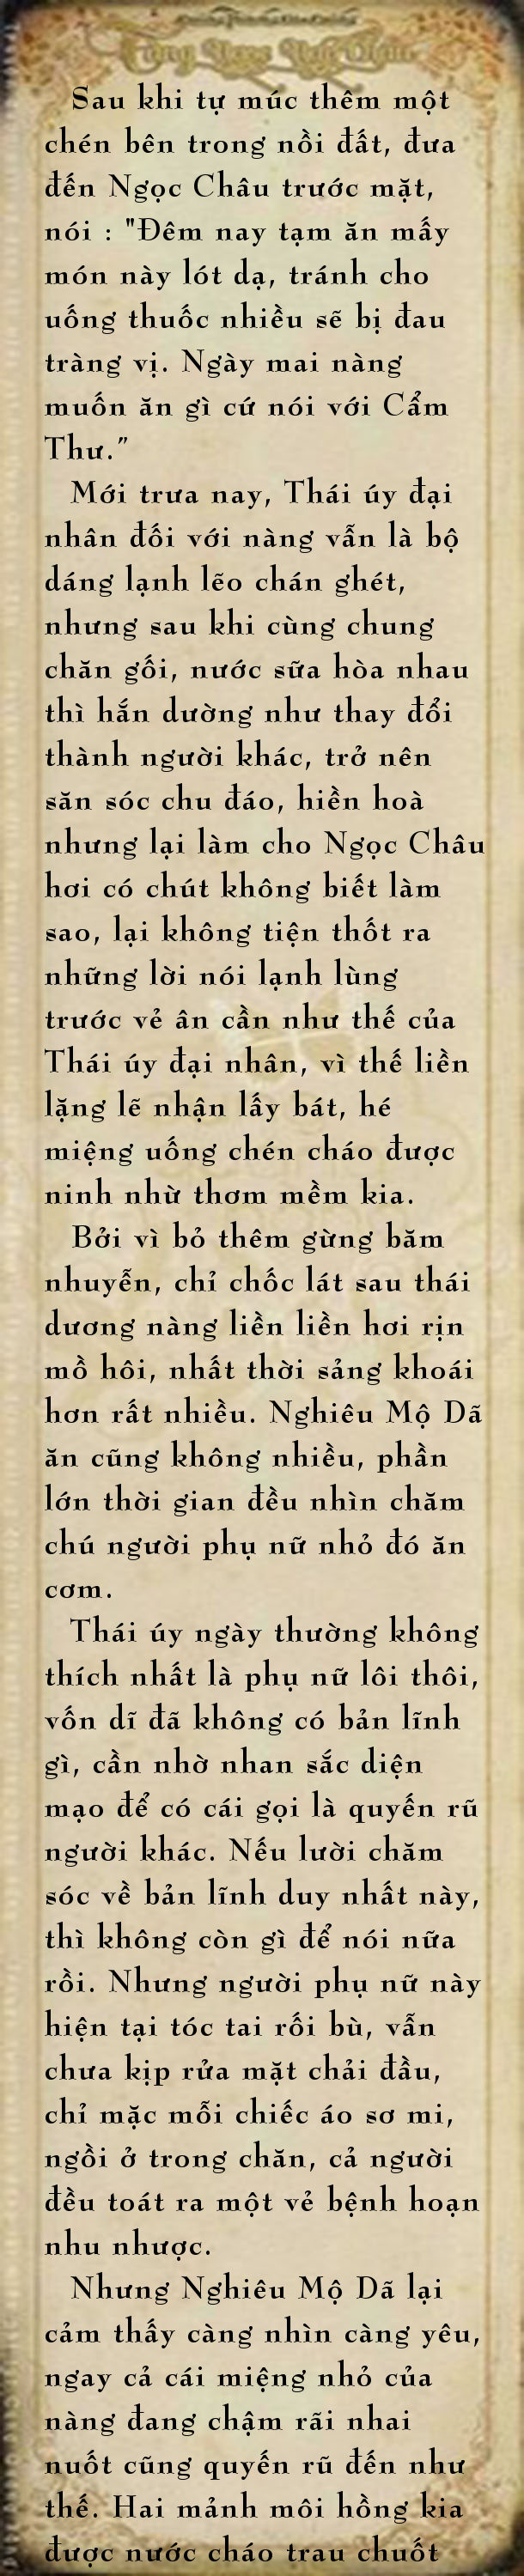 Sau khi tự múc thêm một
chén bên trong nồi đất, đưa
đến Ngọc Châu trước mặt,
nói : "Đêm nay tạm ăn mấy
món này lót dạ, tránh cho
uống thuốc nhiều sẽ bị đau
tràng vị. Ngày mai nàng
muốn ăn gì cứ nói với Cẩm
Thư."
Mới trưa nay, Thái úy đại
nhân đối với nàng vẫn là bộ
dáng lạnh lẽo chán ghét,
nhưng sau khi cùng chung
chăn gối, nước sữa hòa nhau
thì hắn dường như thay đổi
thành người khác, trở nên
săn sóc chu đáo, hiền hoà
nhưng lại làm cho Ngọc Châu
hơi có chút không biết làm
sao, lại không tiện thốt ra
những lời nói lạnh lùng
trước vẻ ân cần như thế của
Thái úy đại nhân, vì thế liền
lặng lẽ nhận lấy bát, hé
miệng uống chén cháo được
ninh nhừ thơm mềm kia.
Bởi vì bỏ thêm gừng băm
nhuyễn, chỉ chốc lát sau thái
dương nàng liền liền hơi rịn
mồ hôi, nhất thời sảng khoái
hơn rất nhiều. Nghiêu Mộ Dã
ăn cũng không nhiều, phần
lớn thời gian đều nhìn chăm
chú người phụ nữ nhỏ đó ăn
cơm.
Thái úy ngày thường không
thích nhất là phụ nữ lôi thôi,
vốn dĩ đã không có bản lĩnh
gì, cần nhờ nhan sắc diện
mạo để có cái gọi là quyến rũ
người khác. Nếu lười chăm
sóc về bản lĩnh duy nhất này,
thì không còn gì để nói nữa
rồi. Nhưng người phụ nữ này
hiện tại tóc tai rối bù, vẫn
chưa kịp rửa mặt chải đầu,
chỉ mặc mỗi chiếc áo sơ mi,
ngồi ở trong chăn, cả người
đều toát ra một vẻ bệnh hoạn
nhu nhược.
Nhưng Nghiêu Mộ Dã lại
cảm thấy càng nhìn càng yêu,
ngay cả cái miệng nhỏ của
nàng đang chậm rãi nhai
nuốt cũng quyến rũ đến như
thế. Hai mảnh môi hồng kia
được nước cháo trau chuốt